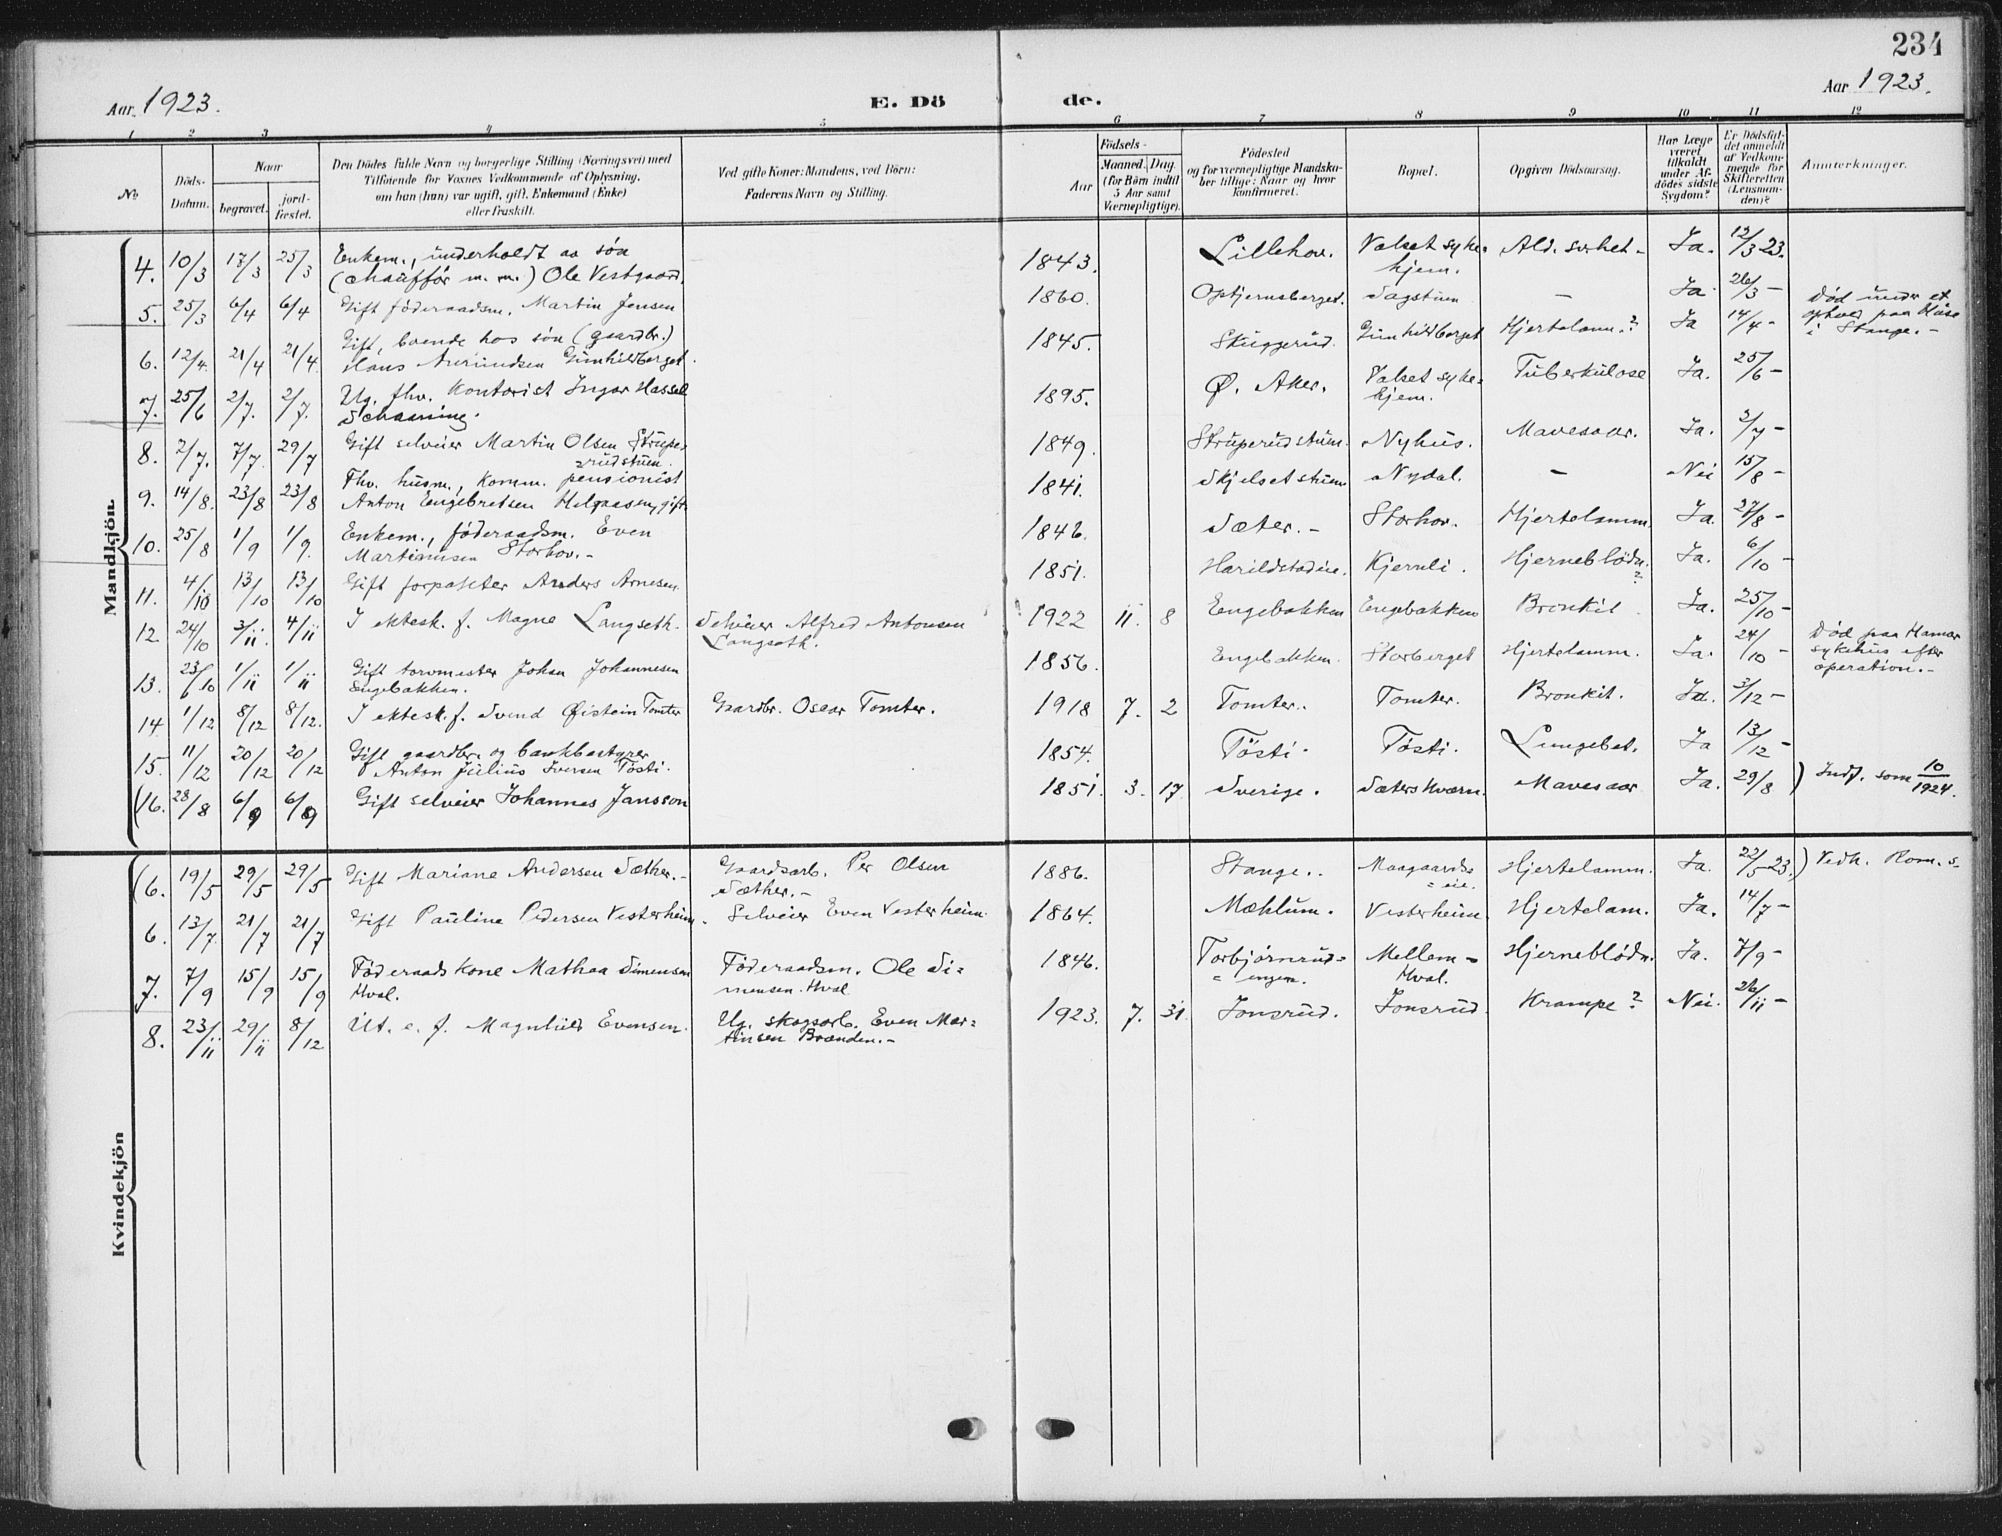 234
Aar 1923.
E. Dö de.
Aar 1923.
1 2 3 4 5 6 7 8 9 10 11 12
No
Döds-Datum.
Naar
begravet.
jord-fæstet.
Den Dödes fulde Navn og borgerlige Stilling (Næringsvei) med
Tilföiende for Voxnes Vedkommende af Oplysning,
om han (hun) var ugift, gift, Enkemand (Enke)
eller fraskilt.
Ved gifte Koner: Mandens, ved Börn:
Faderens Navn og Stilling.
Födsels-
Aar
Maaned. Dag.
(for Börn indtil
5 Aar samt
Værnepligtige).
Födested
og for værnepligtige Mandska-
ber tillige: Naar og hvor
konfirmeret.
Bopæl.
Opgiven Dödsaarsag.
Har Læge
været
tilkaldt
under Af-
dödes sidste
Sygdom?
Er Dödsfal-
det anmeldt
af Vedkom-
mende for
Skifteretten
(Lensman-
den)?
Anmærkninger.
Mandkjön.
4. 10/3 17/3 25/3 Enkem., underholdt av søn
(chauffør m. m.) Ole Vestgaard. 1843. Lillehov. Valset syke-
hjem. Ald. svkhet - Ja. 12/3 23.
5. 25/3 6/4 6/4 Gift föderaadsm. Martin Jensen 1860. Optjernsberget. Sagstuen - Ja. 26/3 - Død under et
ophold paa
i Stange. -
6. 12/4. 21/4 21/4. Gift, boende hos søn (gaardbr.)
Hans Amundsen Gunhildberget. 1845. Skuggerud. Gunhildberget Hjertelam.? Ja 14/4 -
7. 25/6 2/7. 2/7. Ug. fhv. kontorist Ingar Hassel
Schaaning. 1895. Ø. Aker. Valset syke-
hjem. Tuberkulose Ja. 25/6 -
8. 2/7. 7/7. 29/7 Gift selveier Martin Olsen Strupe-
rudstuen. 1849. Struperudstuen. Nyhus. Mavesaar. Ja. 2/7 -
9. 14/8. 23/8 23/8 Fhv. husm., komm. pensionist
Anton Engebretsen Helgaasen, gift. 1841. Skjelsetstuen Nydal. - Nei 15/8 -
10. 25/8 1/9 1/9. Enkem., føderaadsm. Even
Martinusen Storhov. - 1846. Sæter. - Storhov. Hjertelamm. Ja. 27/8 -
11. 4/10 13/10 13/10 Gift forpakter Anders Arnesen. 1851. Harildstadeie. Kjernli. Hjerneblödn.
? Ja. 6/10 -
12. 24/10 3/11. 4/11 I ektesk. f. Magne Langseth. Selveier Alfred Antonsen
Langseth. 1922 11. 8 Engebakken Engebakken Bronkit. Ja. 25/10 -
13. 23/10 1/11 1/11 Gift tørvmester Johan Johannesen
Engebakken. 1856. Engebakken. Storberget Hjertelamm. Ja. 24/10 - Död paa Hamar
sykehus efter
operation. -
14 1/12 8/12 8/12. I ektesk. f. Svend Øistein Tomter Gaardbr. Oscar Tomter. 1918 7. 2 Tomter. Tomter. Bronkit. Ja. 3/12 -
15. 11/12 20/12 20/12 Gift gaardbr. og bankbestyrer
Anton Julius Iversen Tösti. 1854. Tösti. Tösti. Lungebet. Ja 13/12 -
(16. 28/8 6/9 6/9 Gift selveier Johannes Jansson 1851. 3. 17. Sverige. Sæterskværn. Mavesaar Ja. 29/8 ) Indf. som 10/1924.
Kvindekjön
(6. 19/5 29/5 29/5 Gift Mariane Andersen Sæther. - Gaardsarb. Per Olsen
Sæther. - 1886. Stange. Maagaards-
=eie. Hjertelamm. Ja. 22/5 23. ) Vedk. Rom. s.
6. 13/7. 21/7 21/7 Gift Pauline Pedersen Vesterheim. Selveier Even Vesterheim. 1864. Mæhlum. Vesterheim. Hjertelam. Ja. 14/7 -
7. 7/9 15/9 15/9 Föderaadskone Mathea Simensen
Hval. Föderaadsm. Ole Si-
mensen Hval 1846. Torbjørnrud=
=engen. Mellem-
Hval. Hjerneblödn. Ja. 7/9 -
8. 23/11 29/11 8/12 Ut. e. f. Magnhild Evensen. Ug. skogsarb. Even Mar-
tinsen Brænden. - 1923. 7. 31. Jonsrud. Jonsrud. Krampe? Nei. 26/11 -